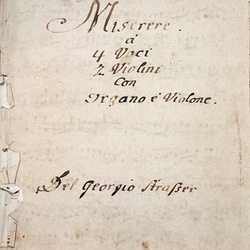 Miserere.
à
4 Voci
2 Violini
Con
Organo è Violone.
Del Georgio Straßer